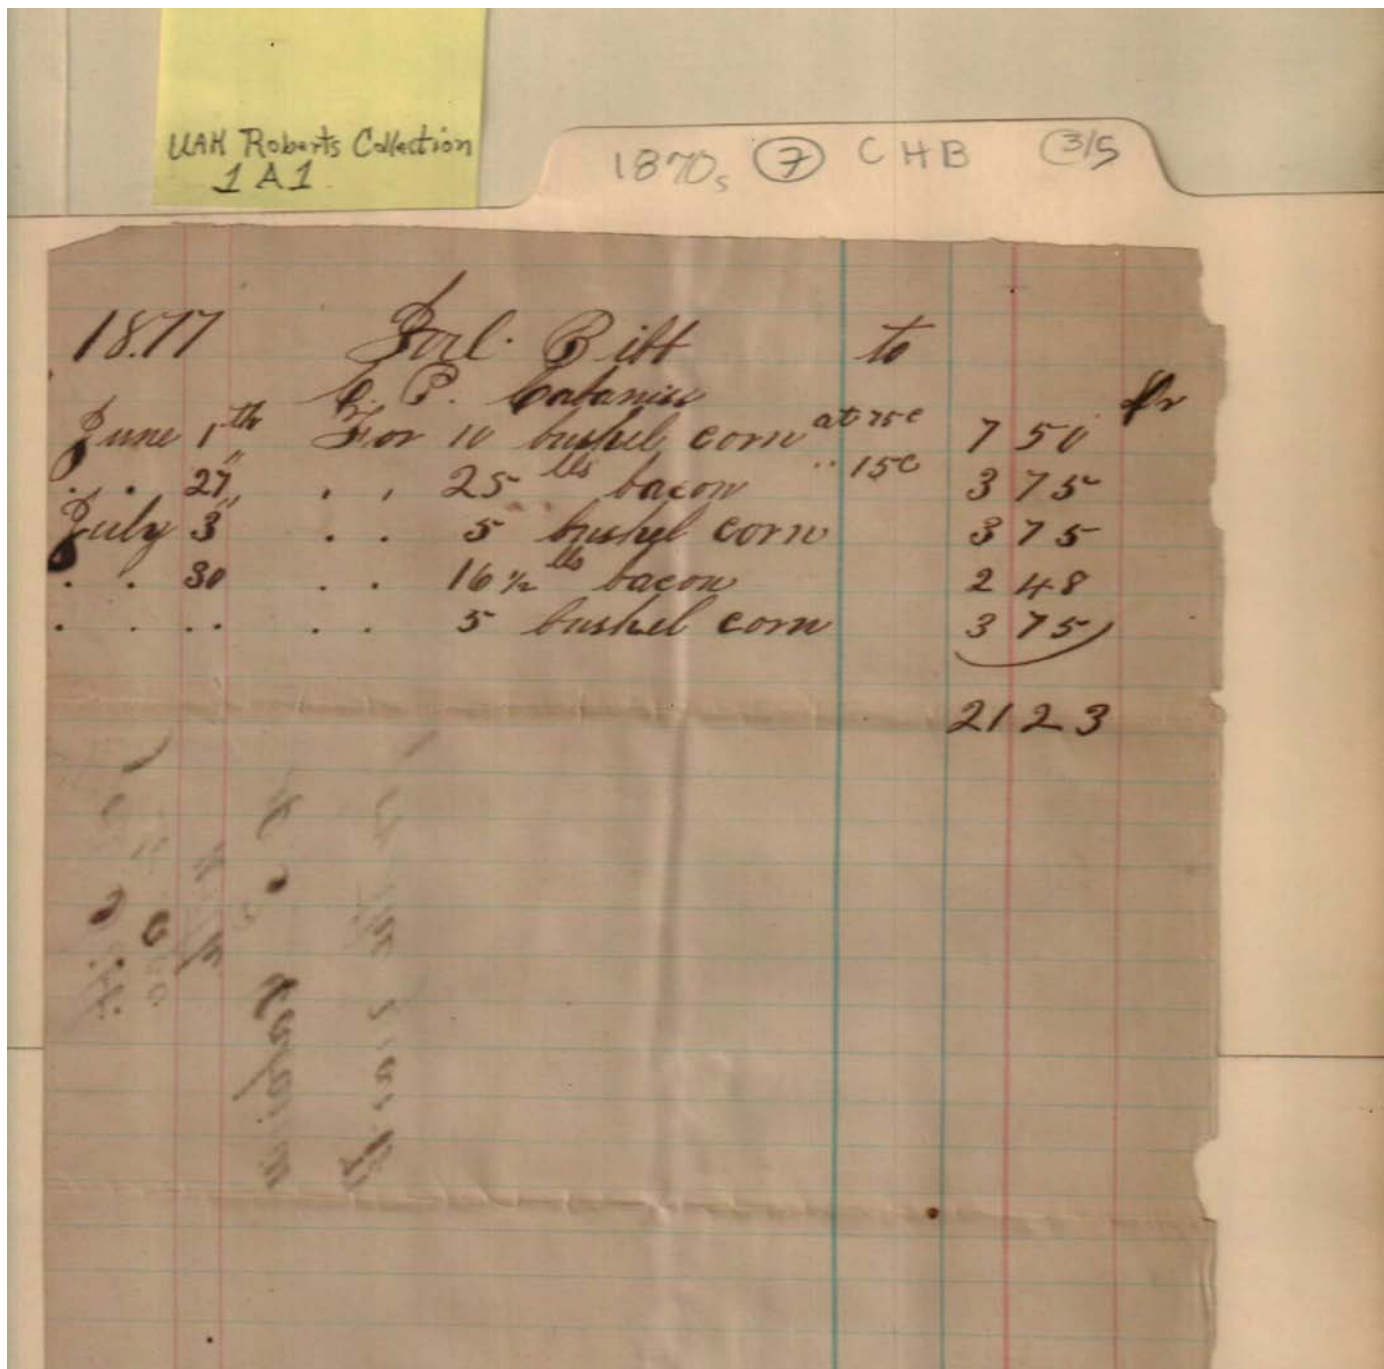 UAH Roberts Collection
1A1
1870s 7 CHB 3/5
1877 to
C. P. Cabaniss Dr
June 1th For 10 bushel corn at 75c 7 50
. . 27" . . 25 lbs bacon " 15c 3 75
July 3" . . 5 bushel corn 3 75
. . 30 . . 16 1/2 lbs bacon 2 48
. . . . . . 5 bushel corn 3 75
21 23